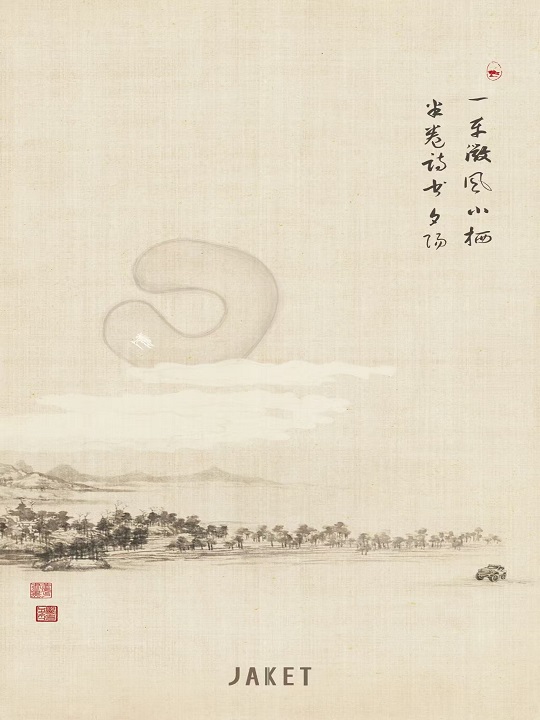 一车微风小栖
半卷诗书夕阳
JAKET